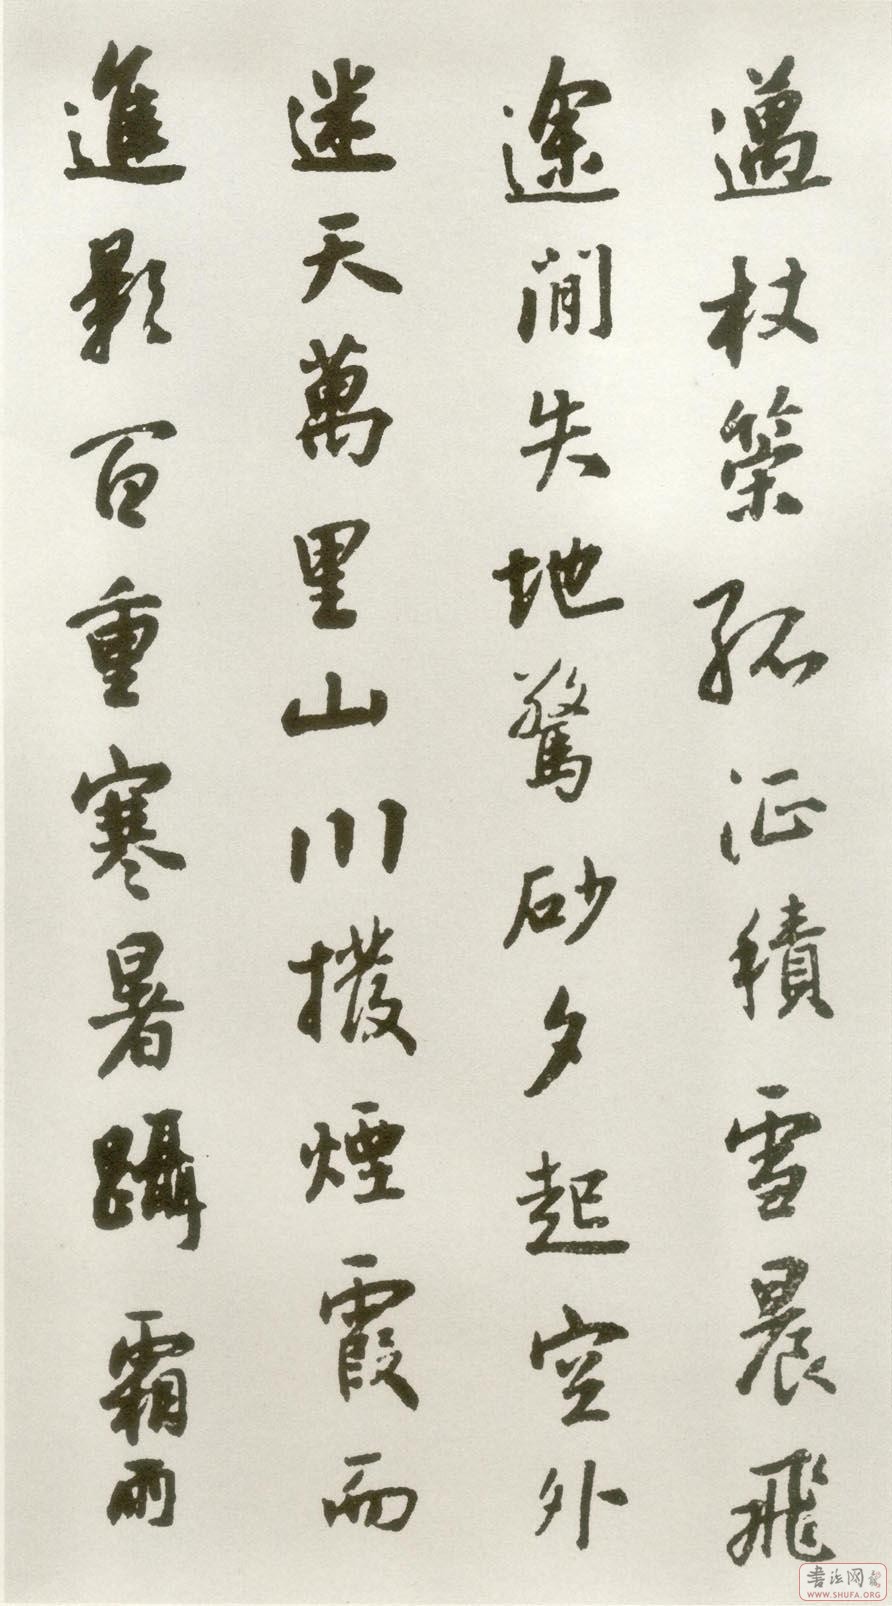 邁杖策孤征積雪晨飛
途閒失地驚砂夕起空外
迷天萬里山川撥煙霞而
進影百重寒暑躡霜雨
書法网
WWW.SHUFA.ORG